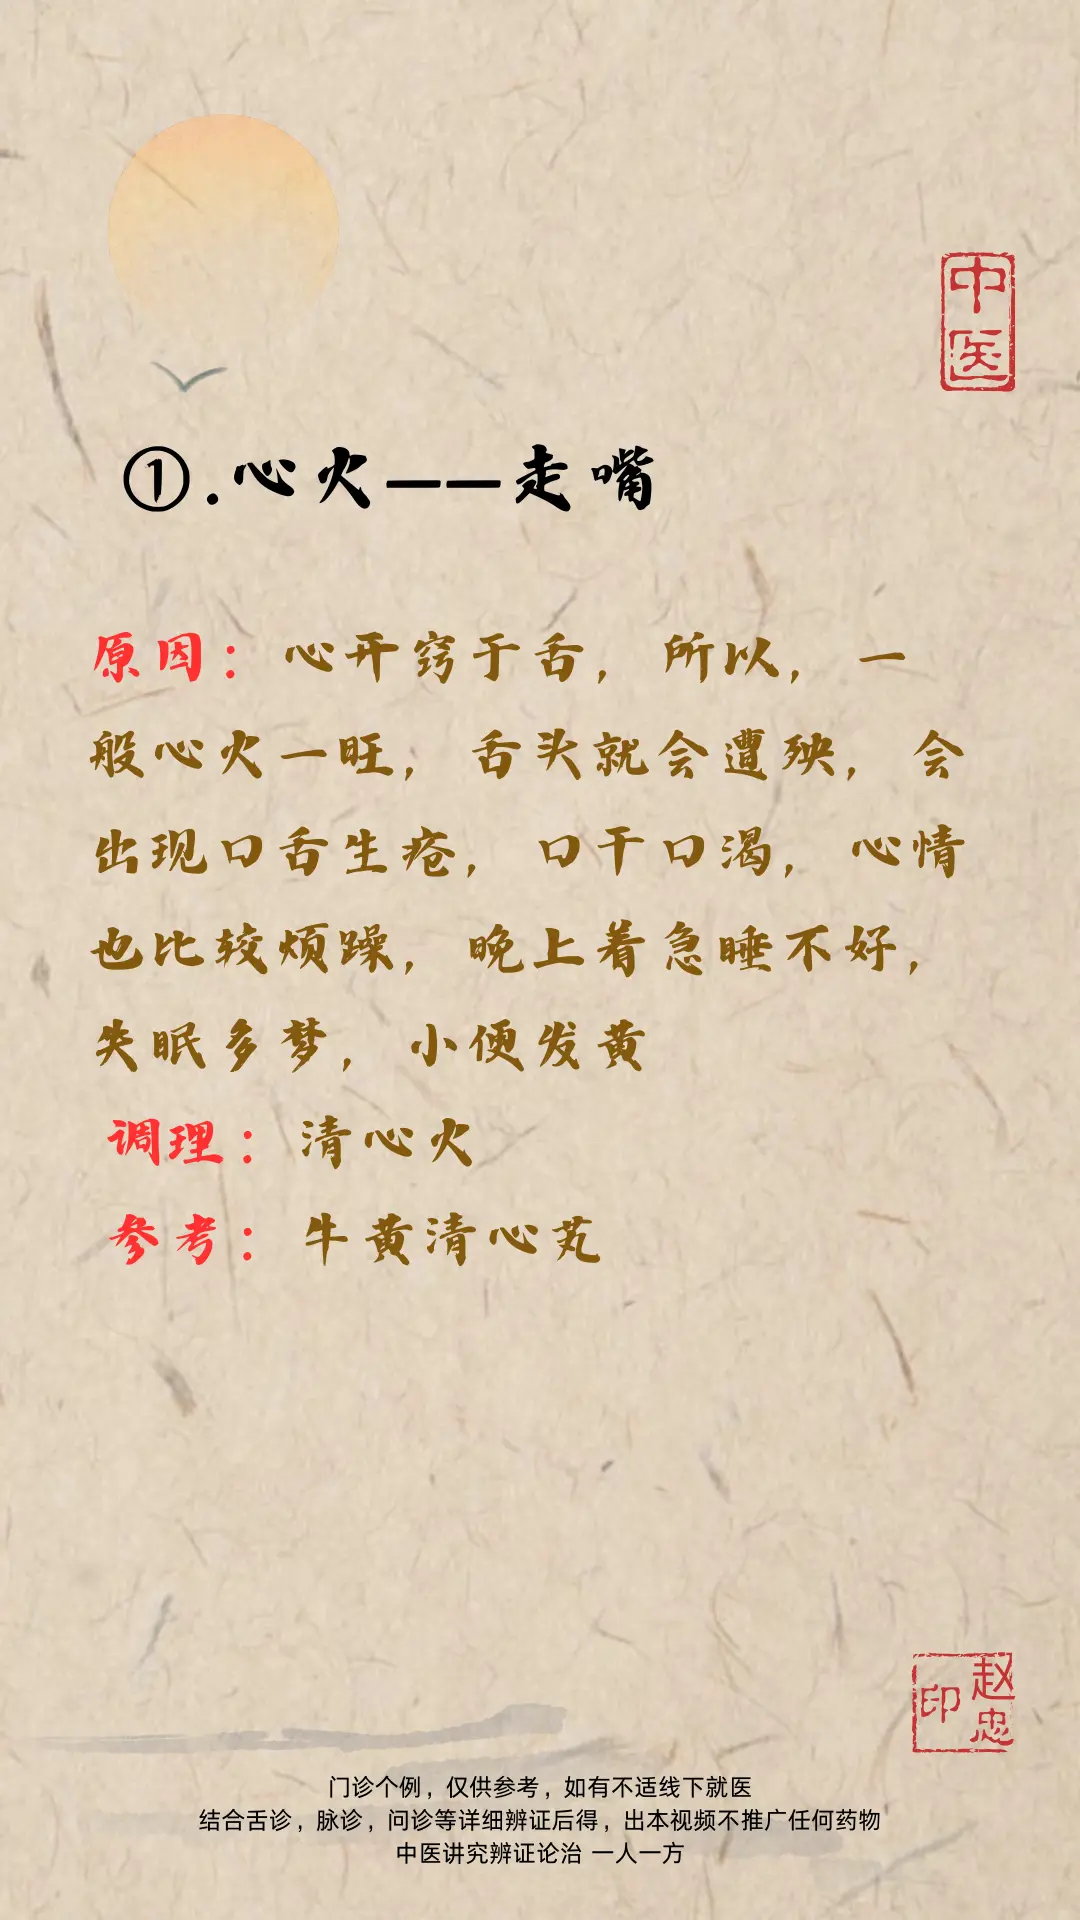 中医
①.心火——走嘴
原因：心开窍于舌，所以，一
般心火一旺，舌头就会遭殃，会
出现口舌生疮，口干口渴，心情
也比较烦躁，晚上着急睡不好，
失眠多梦，小便发黄
调理：清心火
参考：牛黄清心芄
赵忠印
门诊个例，仅供参考，如有不适线下就医
结合舌诊，脉诊，问诊等详细辨证后得，出本视频不推广任何药物
中医讲究辨证论治 一人一方